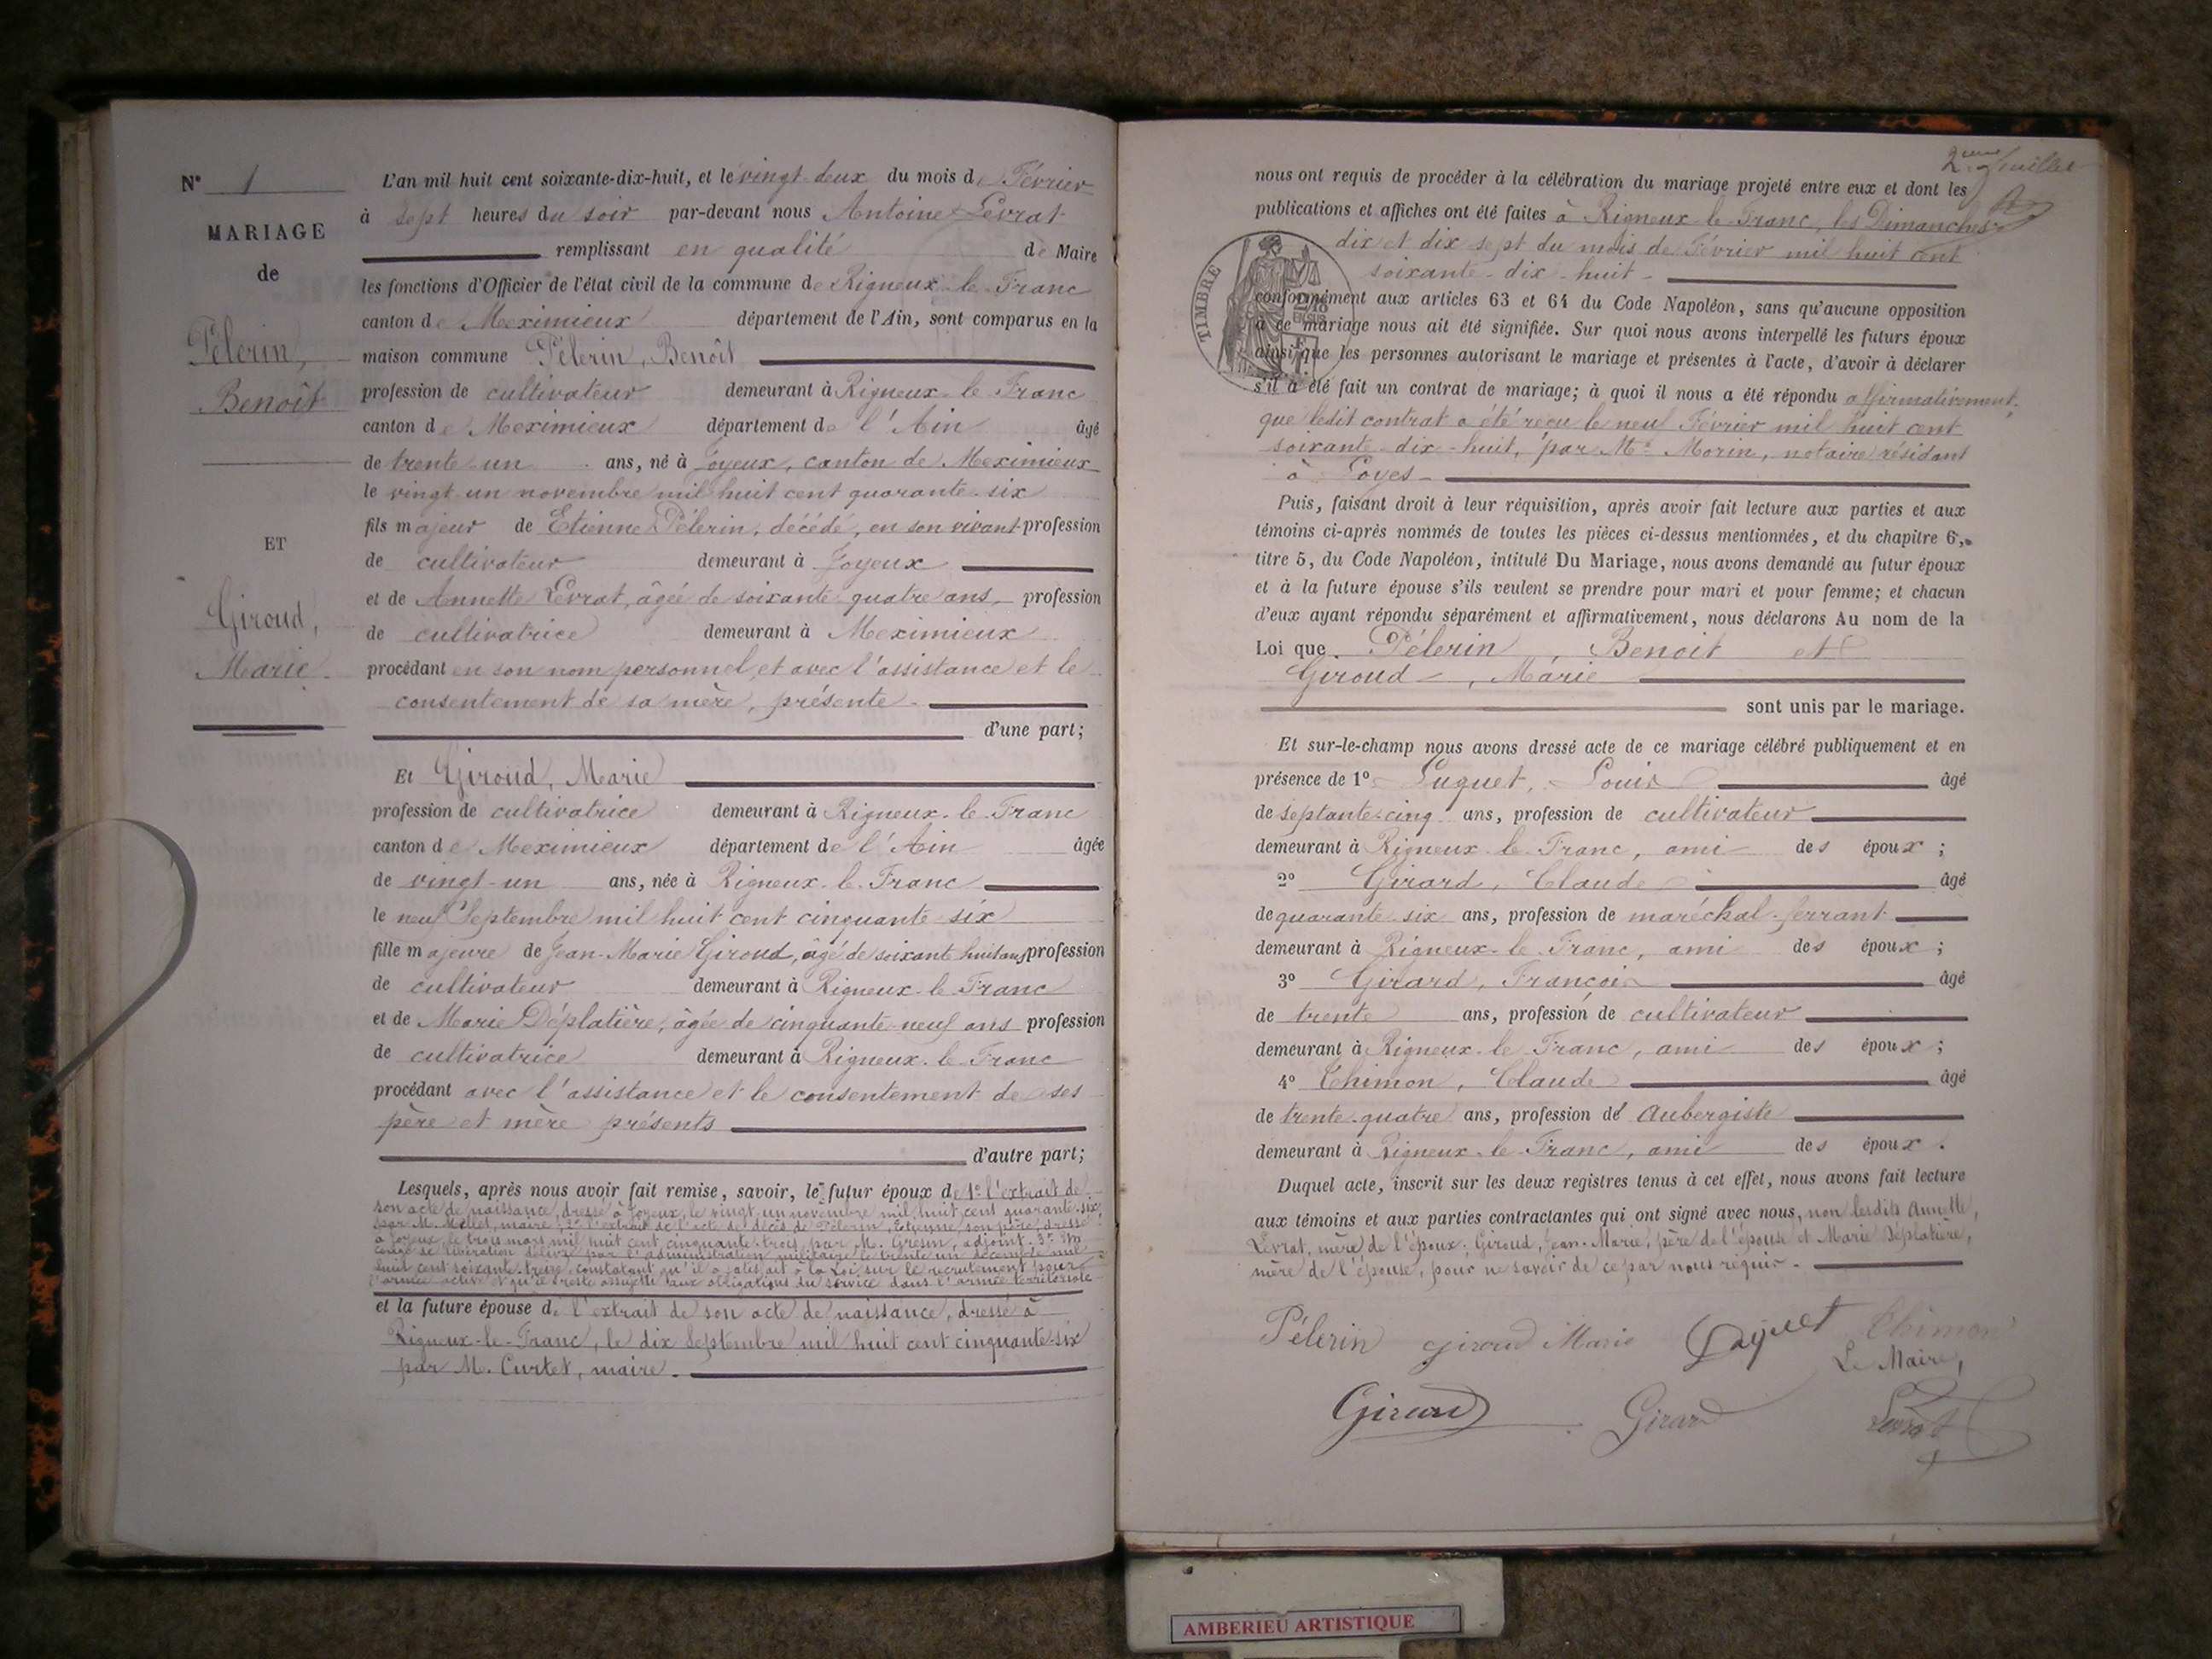 N° 1
MARIAGE
de
Pélerin,
Benoît
ET
Giroud,
Marie
L'an mil huit cent soixante-dix-huit, et le vingt-deux du mois de Février
à sept heures du soir par-devant nous Antoine Levrat
remplissant en qualité de Maire
les fonctions d'Officier de l'état civil de la commune de Rigneux-le-Franc
canton de Meximieux département de l'Ain, sont comparus en la
maison commune Pélerin, Benoît
profession de cultivateur demeurant à Rigneux-le-Franc
canton de Meximieux département de l'Ain âgé
de trente-un ans, né à Joyeux, canton de Meximieux
le vingt-un novembre mil huit cent quarante-six
fils majeur de Etienne Pélerin, décédé, en son vivant profession
de cultivateur demeurant à Joyeux
et de Annette Levrat, âgée de soixante-quatre ans, profession
de cultivatrice demeurant à Meximieux
procédant en son nom personnel, et avec l'assistance et le
consentement de sa mère, présente
d'une part;
Et Giroud, Marie
profession de cultivatrice demeurant à Rigneux-le-Franc
canton de Meximieux département de l'Ain âgée
de vingt-un ans, née à Rigneux-le-Franc
le neuf Septembre mil huit cent cinquante-six
fille majeure de Jean-Marie Giroud, âgé de soixante huit ans, profession
de cultivateur demeurant à Rigneux-le-Franc
et de Marie Déplatière, âgée de cinquante-neuf ans profession
de cultivatrice demeurant à Rigneux-le-Franc
procédant avec l'assistance et le consentement de ses
père et mère présents
d'autre part;
Lesquels, après nous avoir fait remise, savoir, le futur époux de 1° l'extrait de
son acte de naissance, dressé à Joyeux, le vingt-un novembre mil huit cent quarante-six,
par M. maire; 2° l'extrait de l'acte de décès de Pélerin, Etienne, son père, dressé
à Joyeux, le trois mars mil huit cent cinquante-trois, par M. Gresin, adjoint. 3° Un
congé de libération délivré par l'administration militaire le trente-un décembre mil
huit cent soixante-treize, constatant qu'il a satisfait à la Loi sur le recrutement pour
l'armée active et qu'il reste assujetti aux obligations du service dans l'armée territoriale
et la future épouse de l'extrait de son acte de naissance, dressé à
Rigneux-le-Franc, le dix Septembre mil huit cent cinquante-six
par M. Curtet, maire.
2eme feuillet
nous ont requis de procéder à la célébration du mariage projeté entre eux et dont les
publications et affiches ont été faites à Rigneux-le-Franc, les Dimanches
dix et dix sept du mois de Février mil huit cent
soixante-dix-huit
TIMBRE
conformément aux articles 63 et 64 du Code Napoléon, sans qu'aucune opposition
à ce mariage nous ait été signifiée. Sur quoi nous avons interpellé les futurs époux
ainsi que les personnes autorisant le mariage et présentes à l'acte, d'avoir à déclarer
s'il a été fait un contrat de mariage; à quoi il nous a été répondu affirmativement,
que ledit contrat a été reçu le neuf Février mil huit cent
soixante-dix-huit, par Me Morin, notaire résidant
à Loyes
Puis, faisant droit à leur réquisition, après avoir fait lecture aux parties et aux
témoins ci-après nommés de toutes les pièces ci-dessus mentionnées, et du chapitre 6,
titre 5, du Code Napoléon, intitulé Du Mariage, nous avons demandé au futur époux
et à la future épouse s'ils veulent se prendre pour mari et pour femme; et chacun
d'eux ayant répondu séparément et affirmativement, nous déclarons Au nom de la
Loi que Pélerin, Benoit et
Giroud, Marie
sont unis par le mariage.
Et sur-le-champ nous avons dressé acte de ce mariage célébré publiquement et en
présence de 1° Luguet, Louis âgé
de septante-cinq ans, profession de cultivateur
demeurant à Rigneux-le-Franc, ami des époux;
2° Girard, Claude âgé
de quarante-six ans, profession de maréchal-ferrant
demeurant à Rigneux-le-Franc, ami des époux;
3° Girard, François âgé
de trente ans, profession de cultivateur
demeurant à Rigneux-le-Franc, ami des époux;
4° Thimon, Claude âgé
de trente-quatre ans, profession de Aubergiste
demeurant à Rigneux-le-Franc, ami des époux.
Duquel acte, inscrit sur les deux registres tenus à cet effet, nous avons fait lecture
aux témoins et aux parties contractantes qui ont signé avec nous, non lesdits Annette,
Levrat, mère de l'époux; Giroud, Jean-Marie, père de l'épouse et Marie Déplatière,
mère de l'épouse, pour ne savoir de ce par nous requis.
Pélerin giroud Marie Luguet Thimon
Le Maire,
Girard Girard Levrat
AMBERIEU ARTISTIQUE